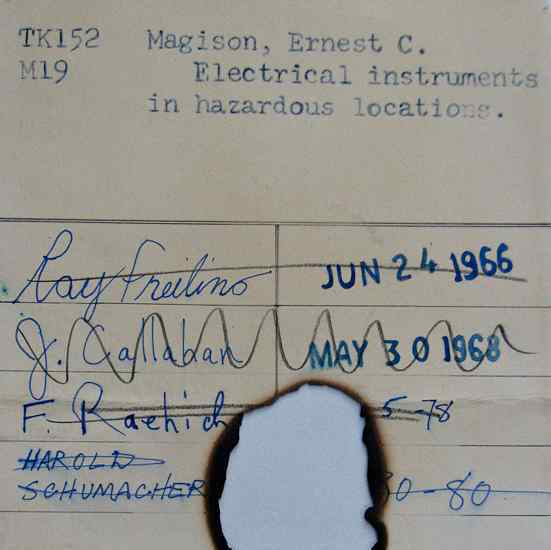 TK152 Magison, Ernest C.
M19 Electrical instruments
in hazardous locations.
Ray Freilino JUN 24 1966
J. Callahan MAY 30 1968
F. 5-78
HAROLD
SCHUMACHER 30-80